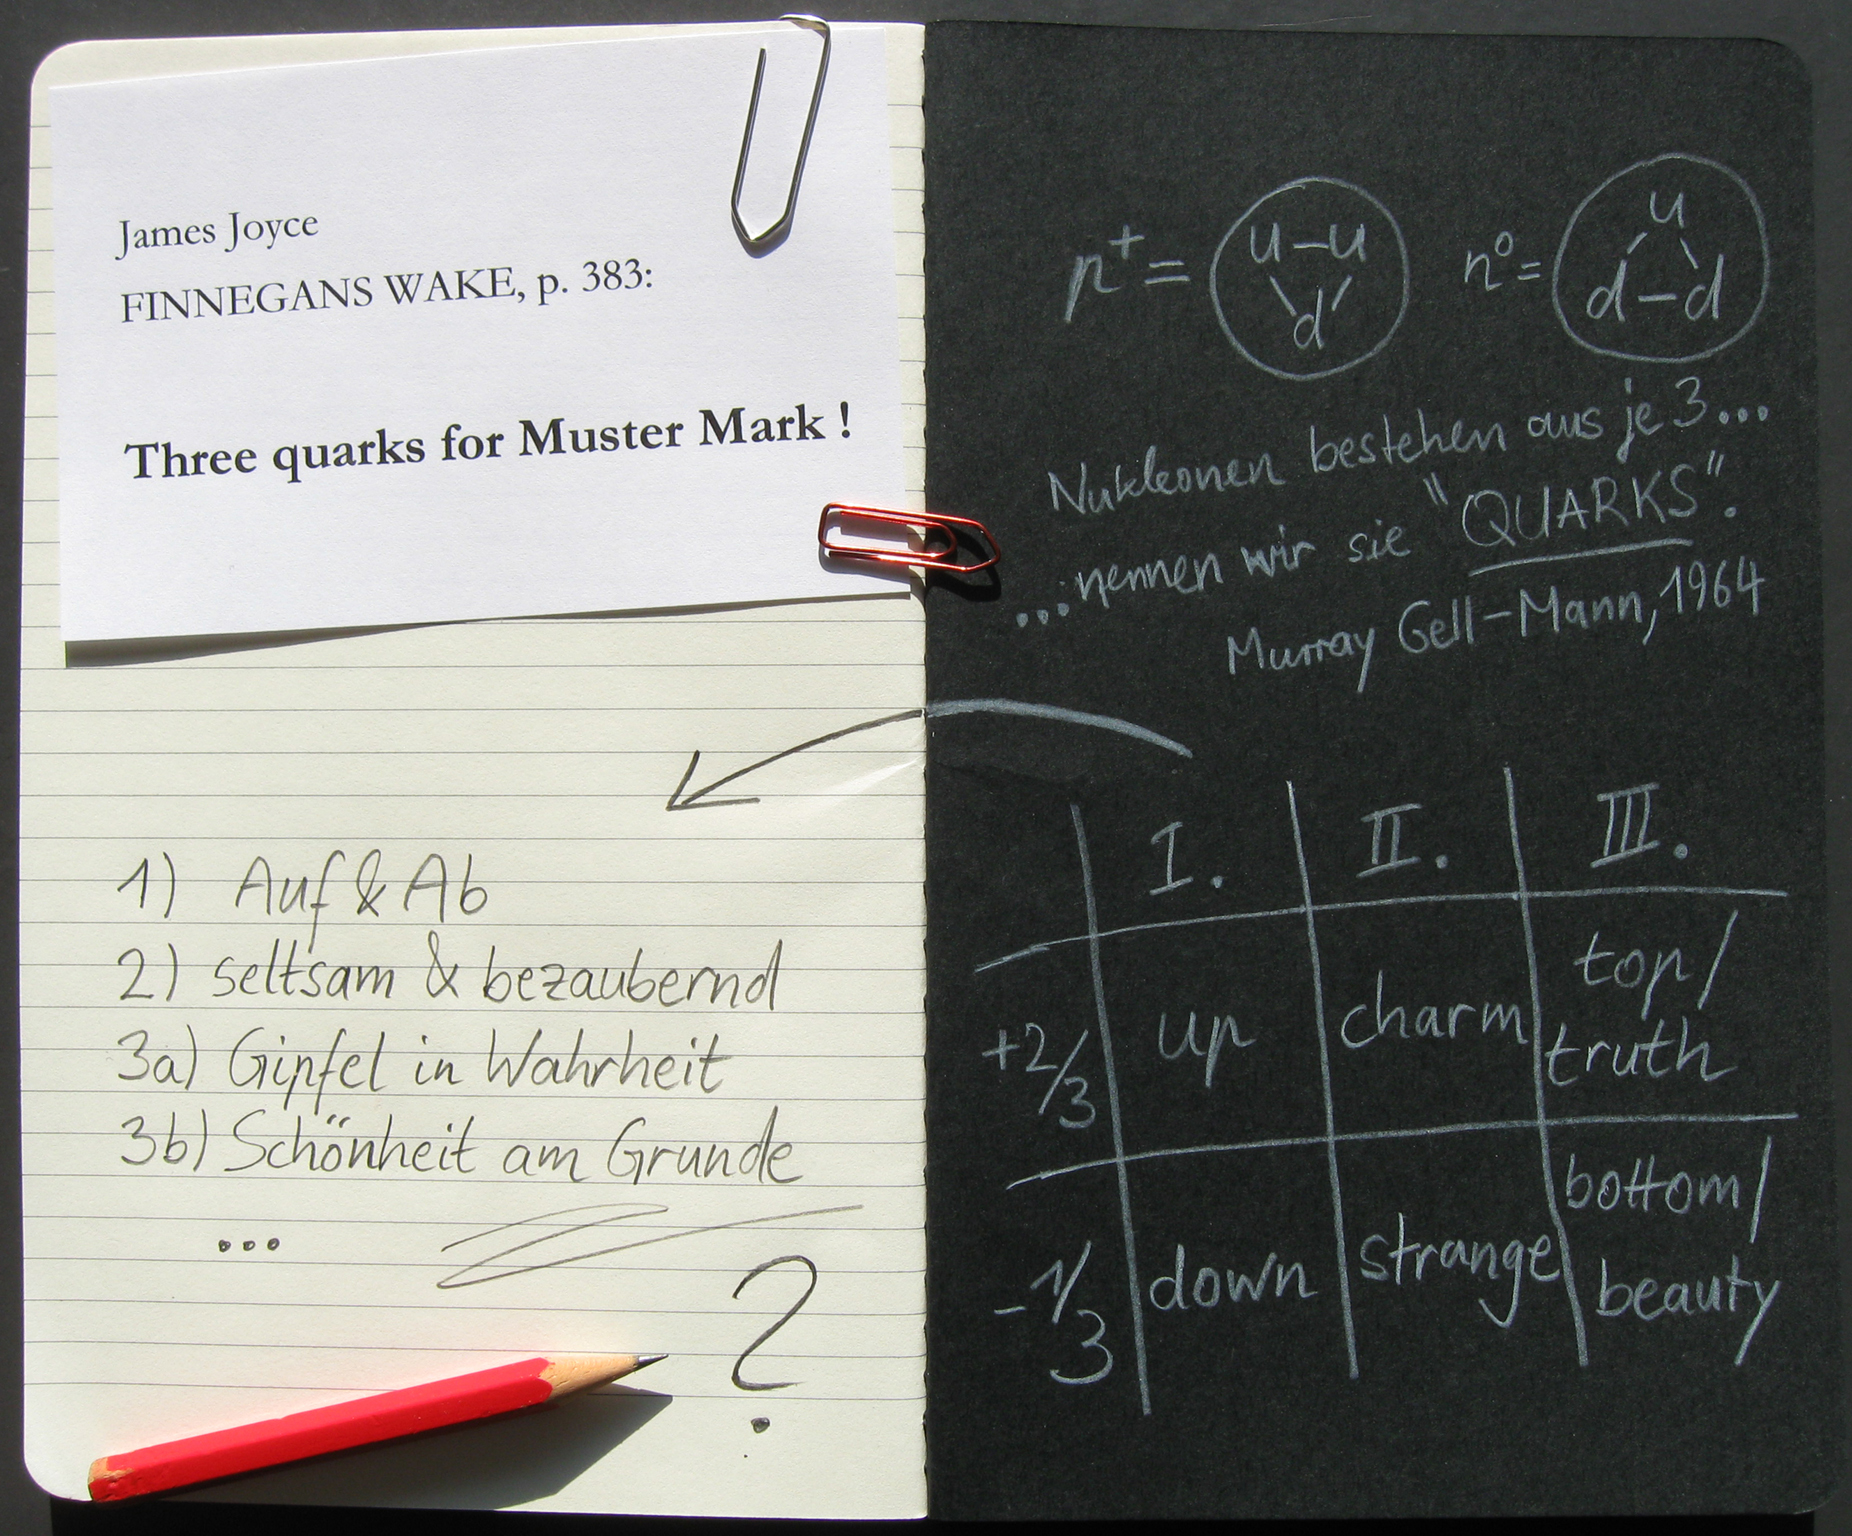 James Joyce
FINNEGANS WAKE, p. 383:
Three quarks for Muster Mark !
1) Auf & Ab
2) seltsam & bezaubernd
3a) Gipfel in Wahrheit
3b) Schönheit am Grunde
...
?
p⁺ = u–u d
n⁰ = u d–d
Nukleonen bestehen aus je 3...
...nennen wir sie "QUARKS".
Murray Gell-Mann, 1964
I. II. III.
+2/3 up charm top/truth
-1/3 down strange bottom/beauty